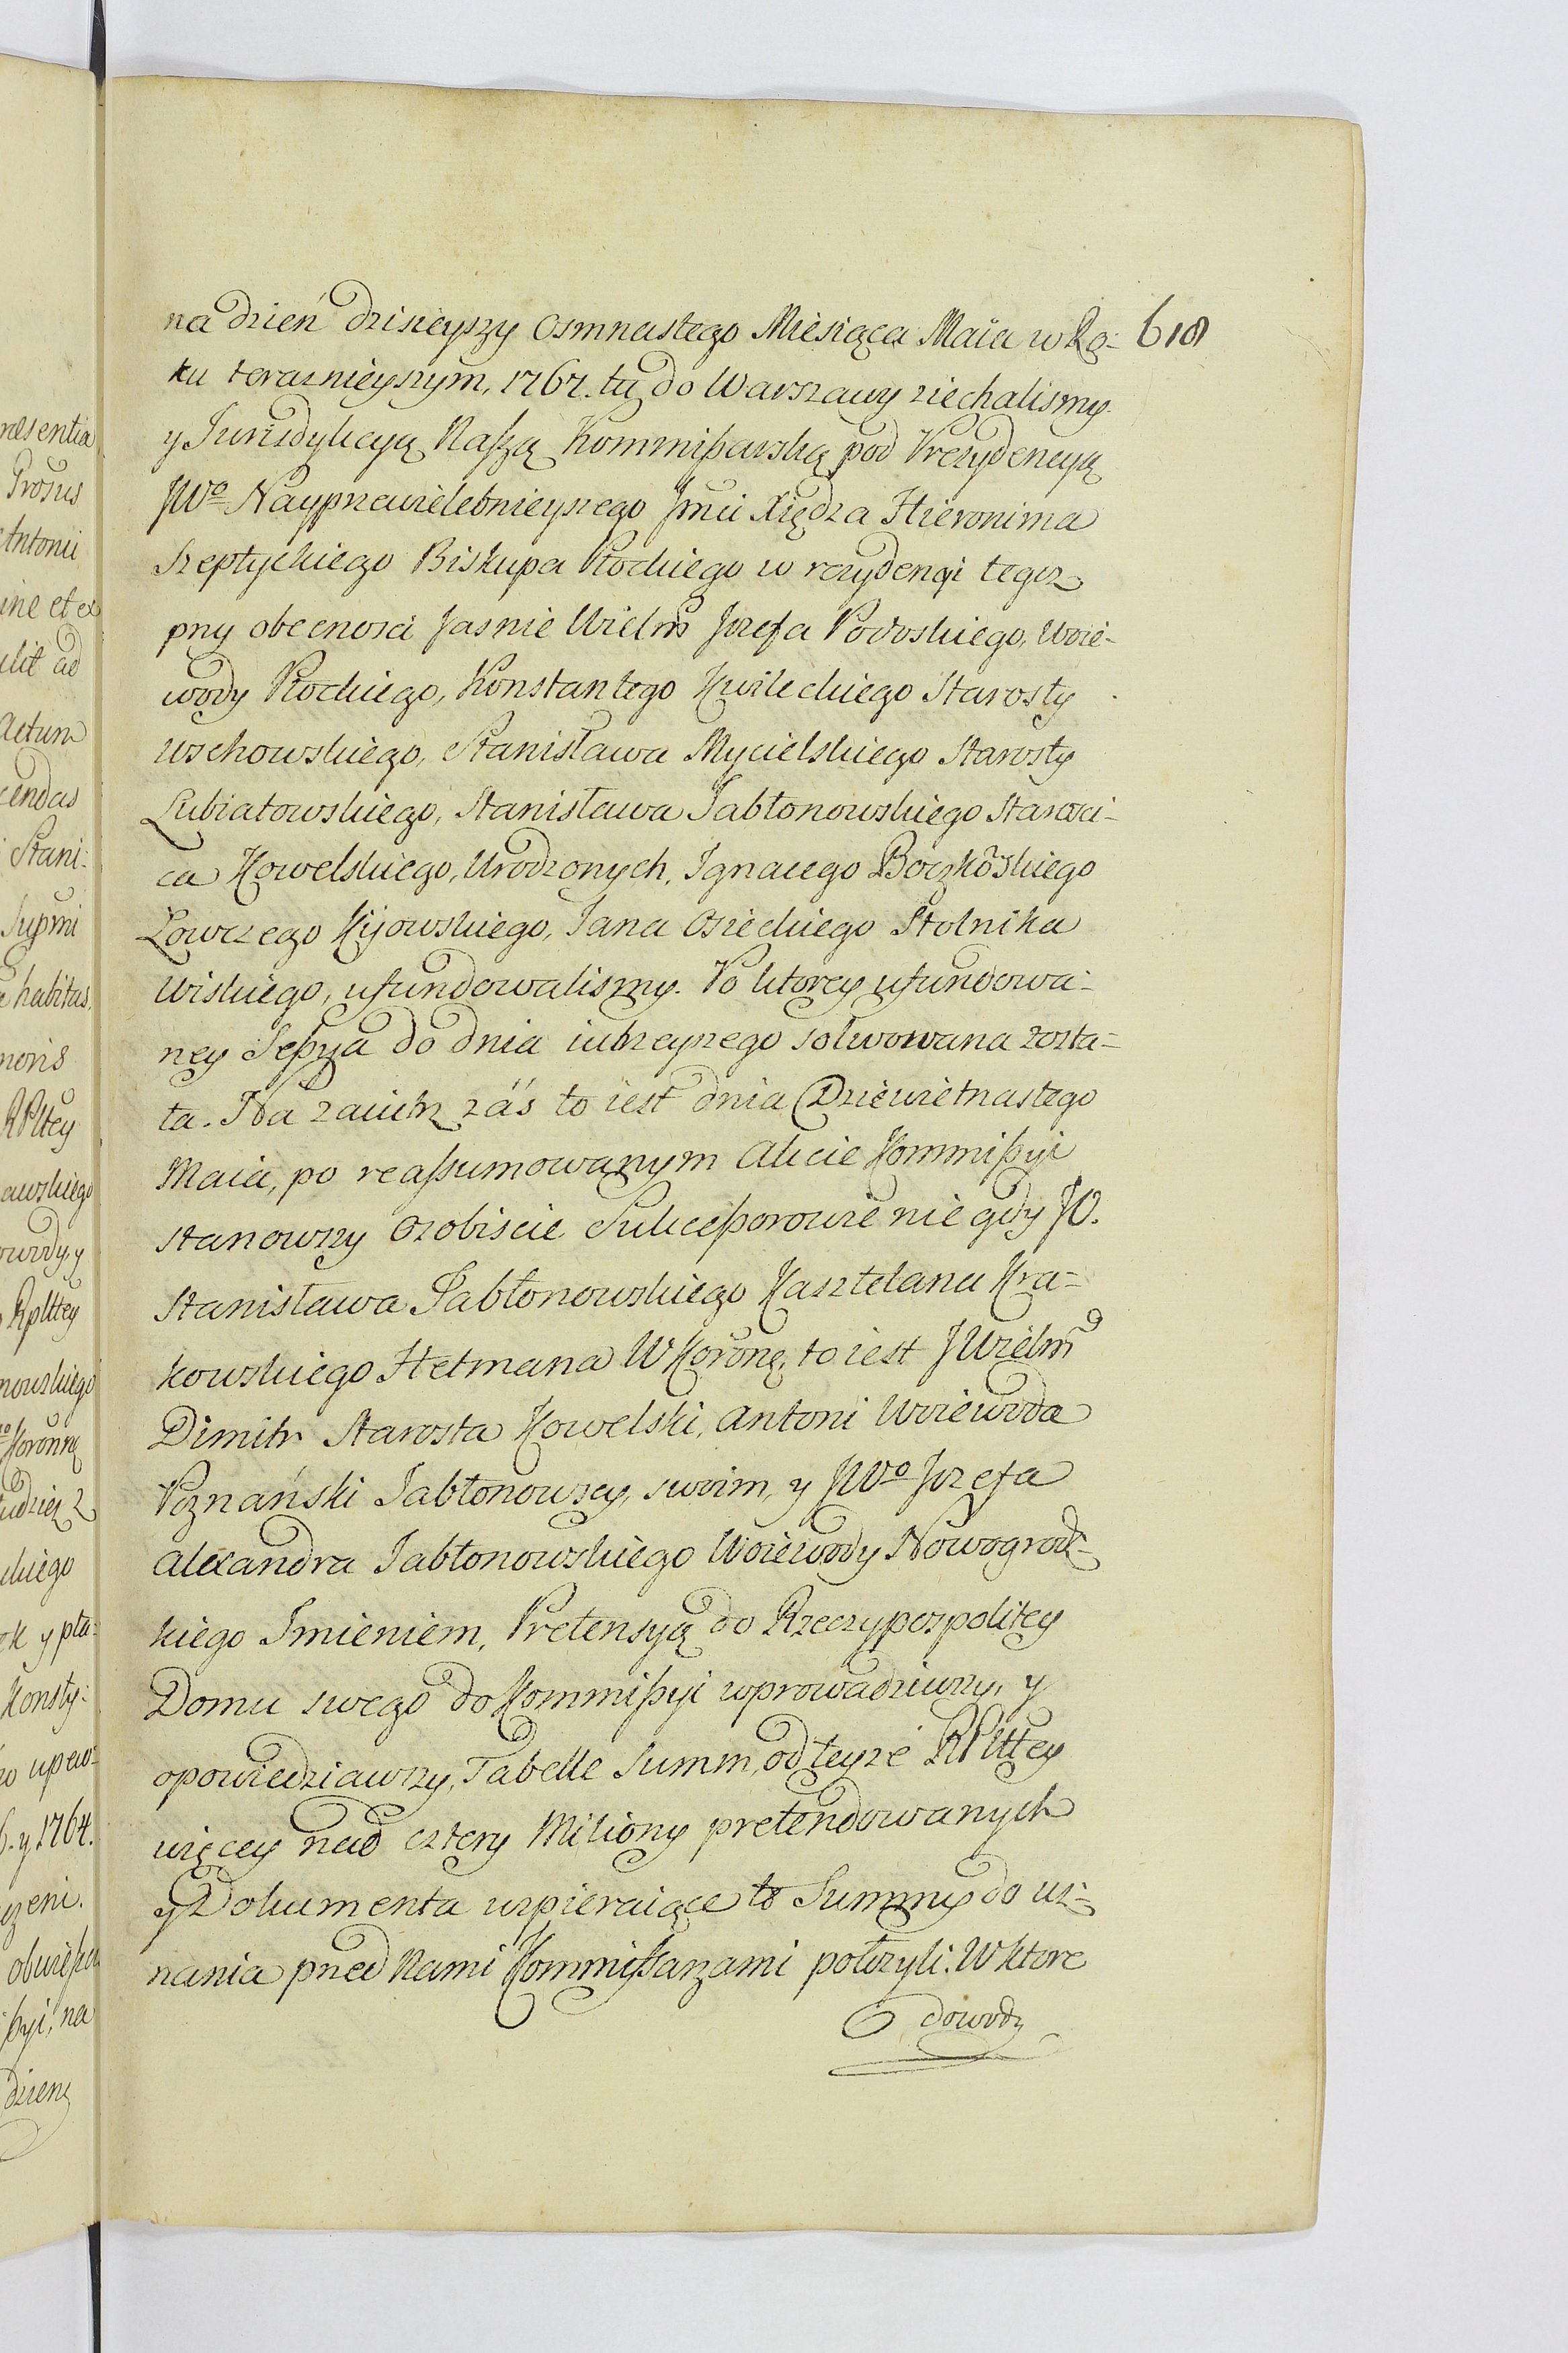 na dzień dzisieyszy Osmnastego Miesiąca Maia w Ro- 618
ku teraznieyszym, 1767. tu do Warszawy ziechalismy
y Jurisdykcyą Naszą Kommissarską pod Prezydencyą
JWo Nayprzewielebnieyszego Jmci Xiędza Hieronima
Szeptyckiego Biskupa Płockiego w rezydencyi tegoż
przy obecnosci Jasnie Wielm Jozefa Podoskiego, Woie-
wody Płockiego, Konstantego Kwileckiego Starosty
wschowskiego, Stanisława Mycielskiego Starosty
Lubiatowskiego, Stanisława Jabłonowskiego Starosci-
ca Kowelskiego, Urodzonych, Ignacego Boczkoskiego
Łowczego Kijowskiego, Jana Osieckiego Stolnika
Wiskiego, ufundowalismy. Po ktorey ufundowa-
ney Sessya do dnia iutrzeyszego solwowana zosta-
ła. Na zaiutrz záś to iest dnia Dziewietnastego
Maia, po reassumowanym Akcie Kommissyi
stanowszy Osobiscie Sukcessorowie nie gdy JO.
Stanisława Jabłonowskiego Kasztelana Kra-
kowskiego Hetmana W Koronę, to iest JWielm
Dimitr Starosta Kowelski, Antoni Woiewoda
Poznański Jabłonowscy, swoim, y JWo Jozefa
Alexandra Jabłonowskiego Woiewody Nowogrodz-
kiego Imieniem, Pretensyą do Rzeczypospolitey
Domu swego do Kommissyi wprowadziwszy, y
opowiedziawszy, Tabelle Summ, od teyże RPlttey
więcey nad cztery Miliony pretendowanych
y Dokumenta wspieraiące te Summy do uz-
nania przed Nami Kommissarzami położyli. W ktore
dowody